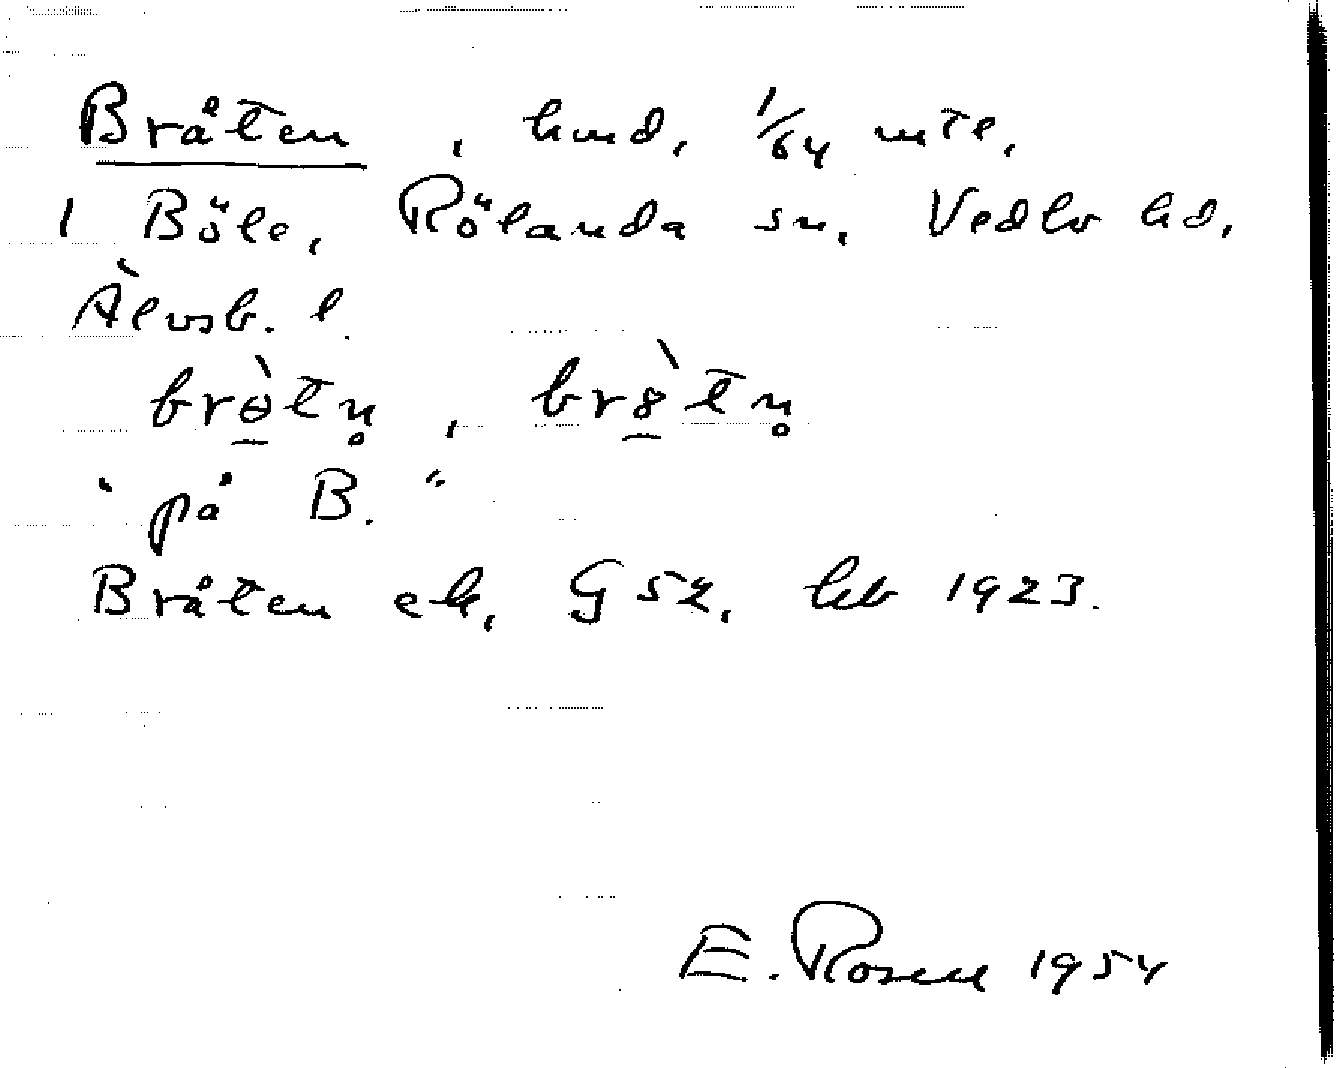 Bråten, hmd, 1/64 mtl,
1 Böle, Rölanda sn, Vedbo hd,
Älvsb. l.
brò̱tn̥, brò̱tn̥
"på B."
Bråten ek, G 52, kb 1923.
E. Rosell 1954